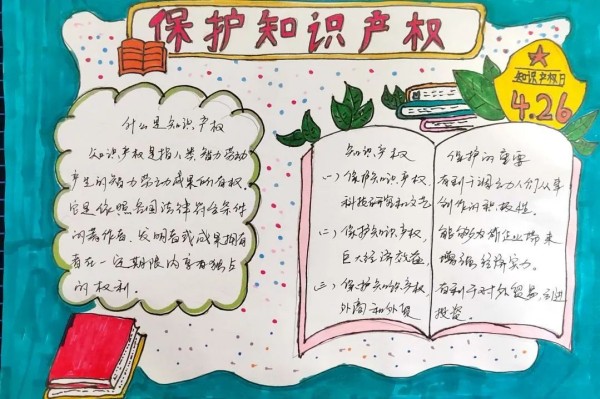 保护知识产权
知识产权日
4.26
什么是知识产权
知识产权是指人类智力劳动
产生的智力劳动成果所有权。
它是依照各国法律符合条件
的著作者、发明者或成果拥有
者在一定期限内享有独占
的权利.
知识产权
一)保护知识产权,
科技研究和文艺
二)保护知识产权,
巨大经济效益
三)保护知识产权,
外商和外贸
保护的重要
有利于调动人们从事
创作的积极性。
能够为企业带来
增强经济实力。
有利于对外贸易,引进
投资。